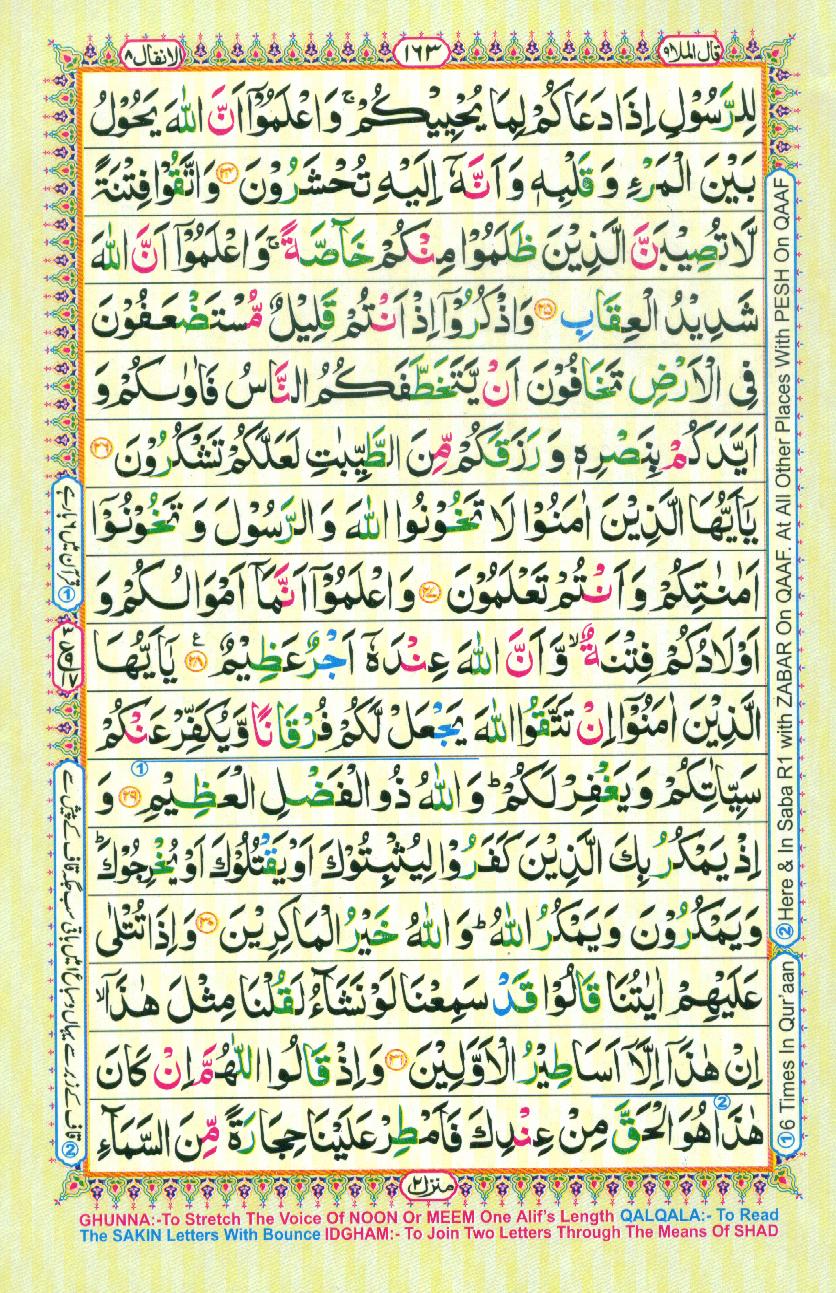 قال الملا۹
۱۶۳
الانفال۸
لِلرَّسُوْلِ اِذَا دَعَاكُمْ لِمَا يُحْيِيْكُمْ ۚ وَاعْلَمُوْٓا اَنَّ اللّٰهَ يَحُوْلُ
بَيْنَ الْمَرْءِ وَ قَلْبِهٖ وَ اَنَّهٗٓ اِلَيْهِ تُحْشَرُوْنَ ۲۴ وَاتَّقُوْا فِتْنَةً
لَّا تُصِيْبَنَّ الَّذِيْنَ ظَلَمُوْا مِنْكُمْ خَآصَّةً ۚ وَ اعْلَمُوْٓا اَنَّ اللّٰهَ
شَدِيْدُ الْعِقَابِ ۲۵ وَاذْكُرُوْٓا اِذْ اَنْتُمْ قَلِيْلٌ مُّسْتَضْعَفُوْنَ
فِي الْاَرْضِ تَخَافُوْنَ اَنْ يَّتَخَطَّفَكُمُ النَّاسُ فَاٰوٰىكُمْ وَ
اَيَّدَكُمْ بِنَصْرِهٖ وَ رَزَقَكُمْ مِّنَ الطَّيِّبٰتِ لَعَلَّكُمْ تَشْكُرُوْنَ ۲۶
يٰٓاَيُّهَا الَّذِيْنَ اٰمَنُوْا لَا تَخُوْنُوا اللّٰهَ وَ الرَّسُوْلَ وَ تَخُوْنُوْٓا
اَمٰنٰتِكُمْ وَ اَنْتُمْ تَعْلَمُوْنَ ۲۷ وَ اعْلَمُوْٓا اَنَّمَآ اَمْوَالُكُمْ وَ
اَوْلَادُكُمْ فِتْنَةٌ ۙ وَّ اَنَّ اللّٰهَ عِنْدَهٗٓ اَجْرٌ عَظِيْمٌ ۲۸ ع يٰٓاَيُّهَا
الَّذِيْنَ اٰمَنُوْٓا اِنْ تَتَّقُوا اللّٰهَ يَجْعَلْ لَّكُمْ فُرْقَانًا وَّ يُكَفِّرْ عَنْكُمْ
سَيِّاٰتِكُمْ وَ يَغْفِرْ لَكُمْ ؕ وَ اللّٰهُ ذُو الْفَضْلِ الْعَظِيْمِ ۲۹ وَ
①
اِذْ يَمْكُرُ بِكَ الَّذِيْنَ كَفَرُوْا لِيُثْبِتُوْكَ اَوْ يَقْتُلُوْكَ اَوْ يُخْرِجُوْكَ ؕ
وَ يَمْكُرُوْنَ وَ يَمْكُرُ اللّٰهُ ؕ وَ اللّٰهُ خَيْرُ الْمَاكِرِيْنَ ۳۰ وَ اِذَا تُتْلٰى
عَلَيْهِمْ اٰيٰتُنَا قَالُوْا قَدْ سَمِعْنَا لَوْ نَشَآءُ لَقُلْنَا مِثْلَ هٰذَآ ۙ
اِنْ هٰذَآ اِلَّآ اَسَاطِيْرُ الْاَوَّلِيْنَ ۳۱ وَ اِذْ قَالُوا اللّٰهُمَّ اِنْ كَانَ
②
هٰذَا هُوَ الْحَقَّ مِنْ عِنْدِكَ فَاَمْطِرْ عَلَيْنَا حِجَارَةً مِّنَ السَّمَآءِ
منزل۲
② Here & In Saba R1 with ZABAR On QAAF. At All Other Places With PESH On QAAF
① 6 Times In Qur'aan
GHUNNA:-To Stretch The Voice Of NOON Or MEEM One Alif's Length QALQALA:- To Read
The SAKIN Letters With Bounce IDGHAM:- To Join Two Letters Through The Means Of SHAD